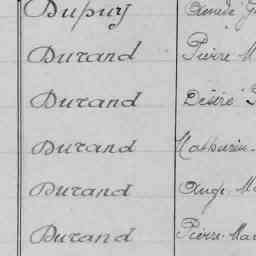 Dupuy Amédé
Durand Pierre M
Durand Désiré
Durand Mathurin
Durand Ange M
Durand Pierre Mar